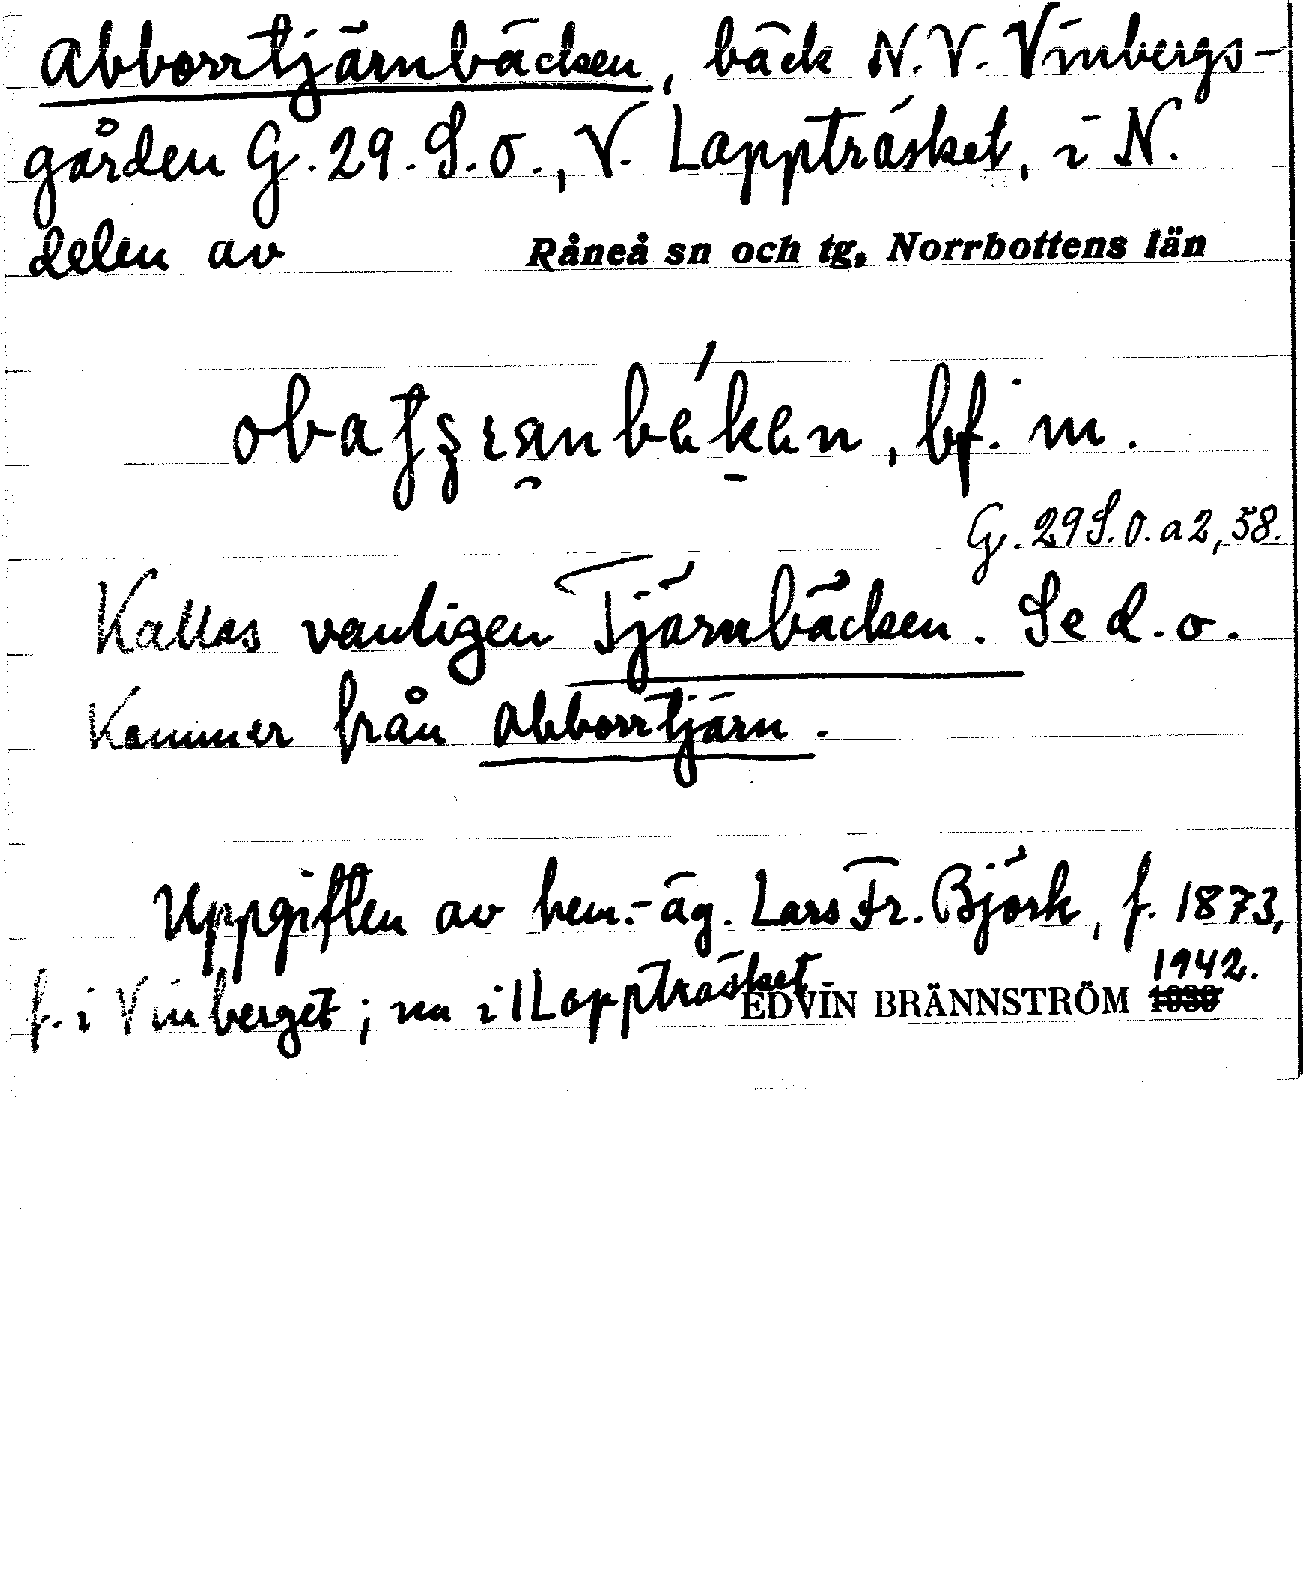 Abborrtjärnbäcken, bäck N.V. Vinbergs-
gården G.29.S.O., V. Lappträsket, i N.
delen av Råneå sn och tg, Norrbottens län
bf. m.
G.29S.O.a2,58.
Kallas vanligen Tjärnbäcken. Se d.o.
Kommer från Abborrtjärn.
Uppgiften av hem.-äg. Lars Fr. Björk, f. 1873,
f. i Vinberget; nu i Lappträsket. EDVIN BRÄNNSTRÖM 1942.